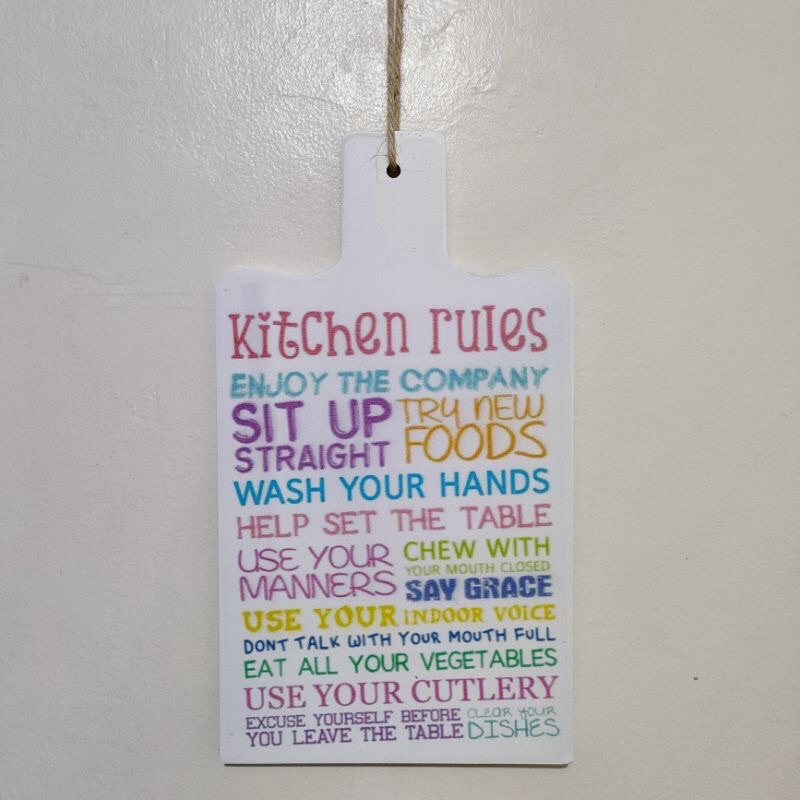 Kitchen rules
ENJOY THE COMPANY
SIT UP
STRAIGHT
TRY NEW
FOODS
WASH YOUR HANDS
HELP SET THE TABLE
USE YOUR
MANNERS
CHEW WITH
YOUR MOUTH CLOSED
SAY GRACE
USE YOUR INDOOR VOICE
DONT TALK WITH YOUR MOUTH FULL
EAT ALL YOUR VEGETABLES
USE YOUR CUTLERY
EXCUSE YOURSELF BEFORE
YOU LEAVE THE TABLE
CLEAR YOUR
DISHES